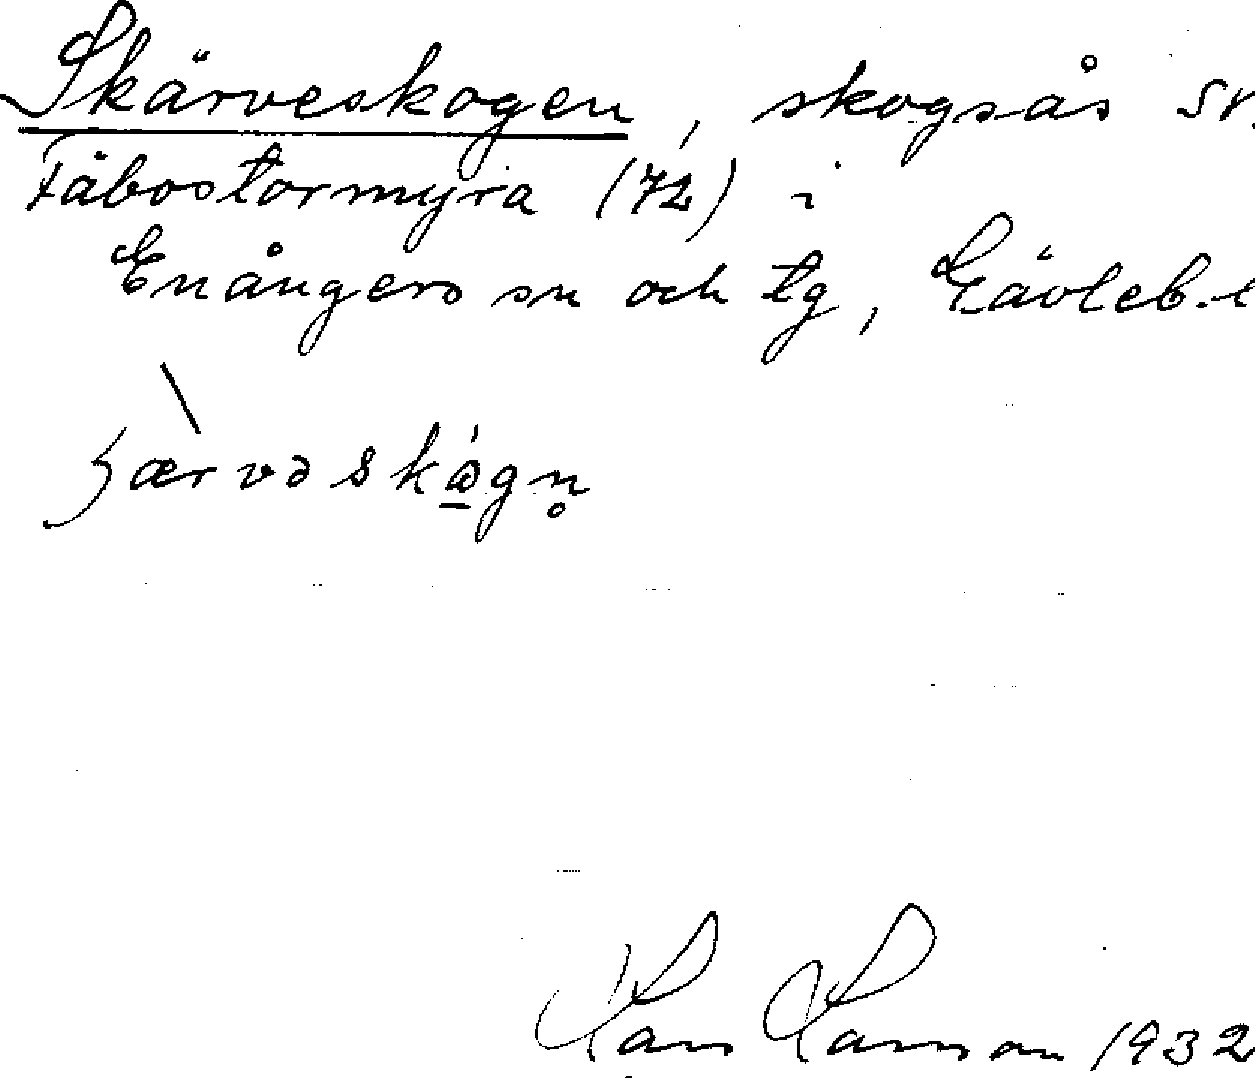 Skärveskogen, skogsås sv.
Fäbostormyra (72) i
Enångers sn och tg, Gävleb. l
ʂærvəskågn̥
Lars Larsson 1932